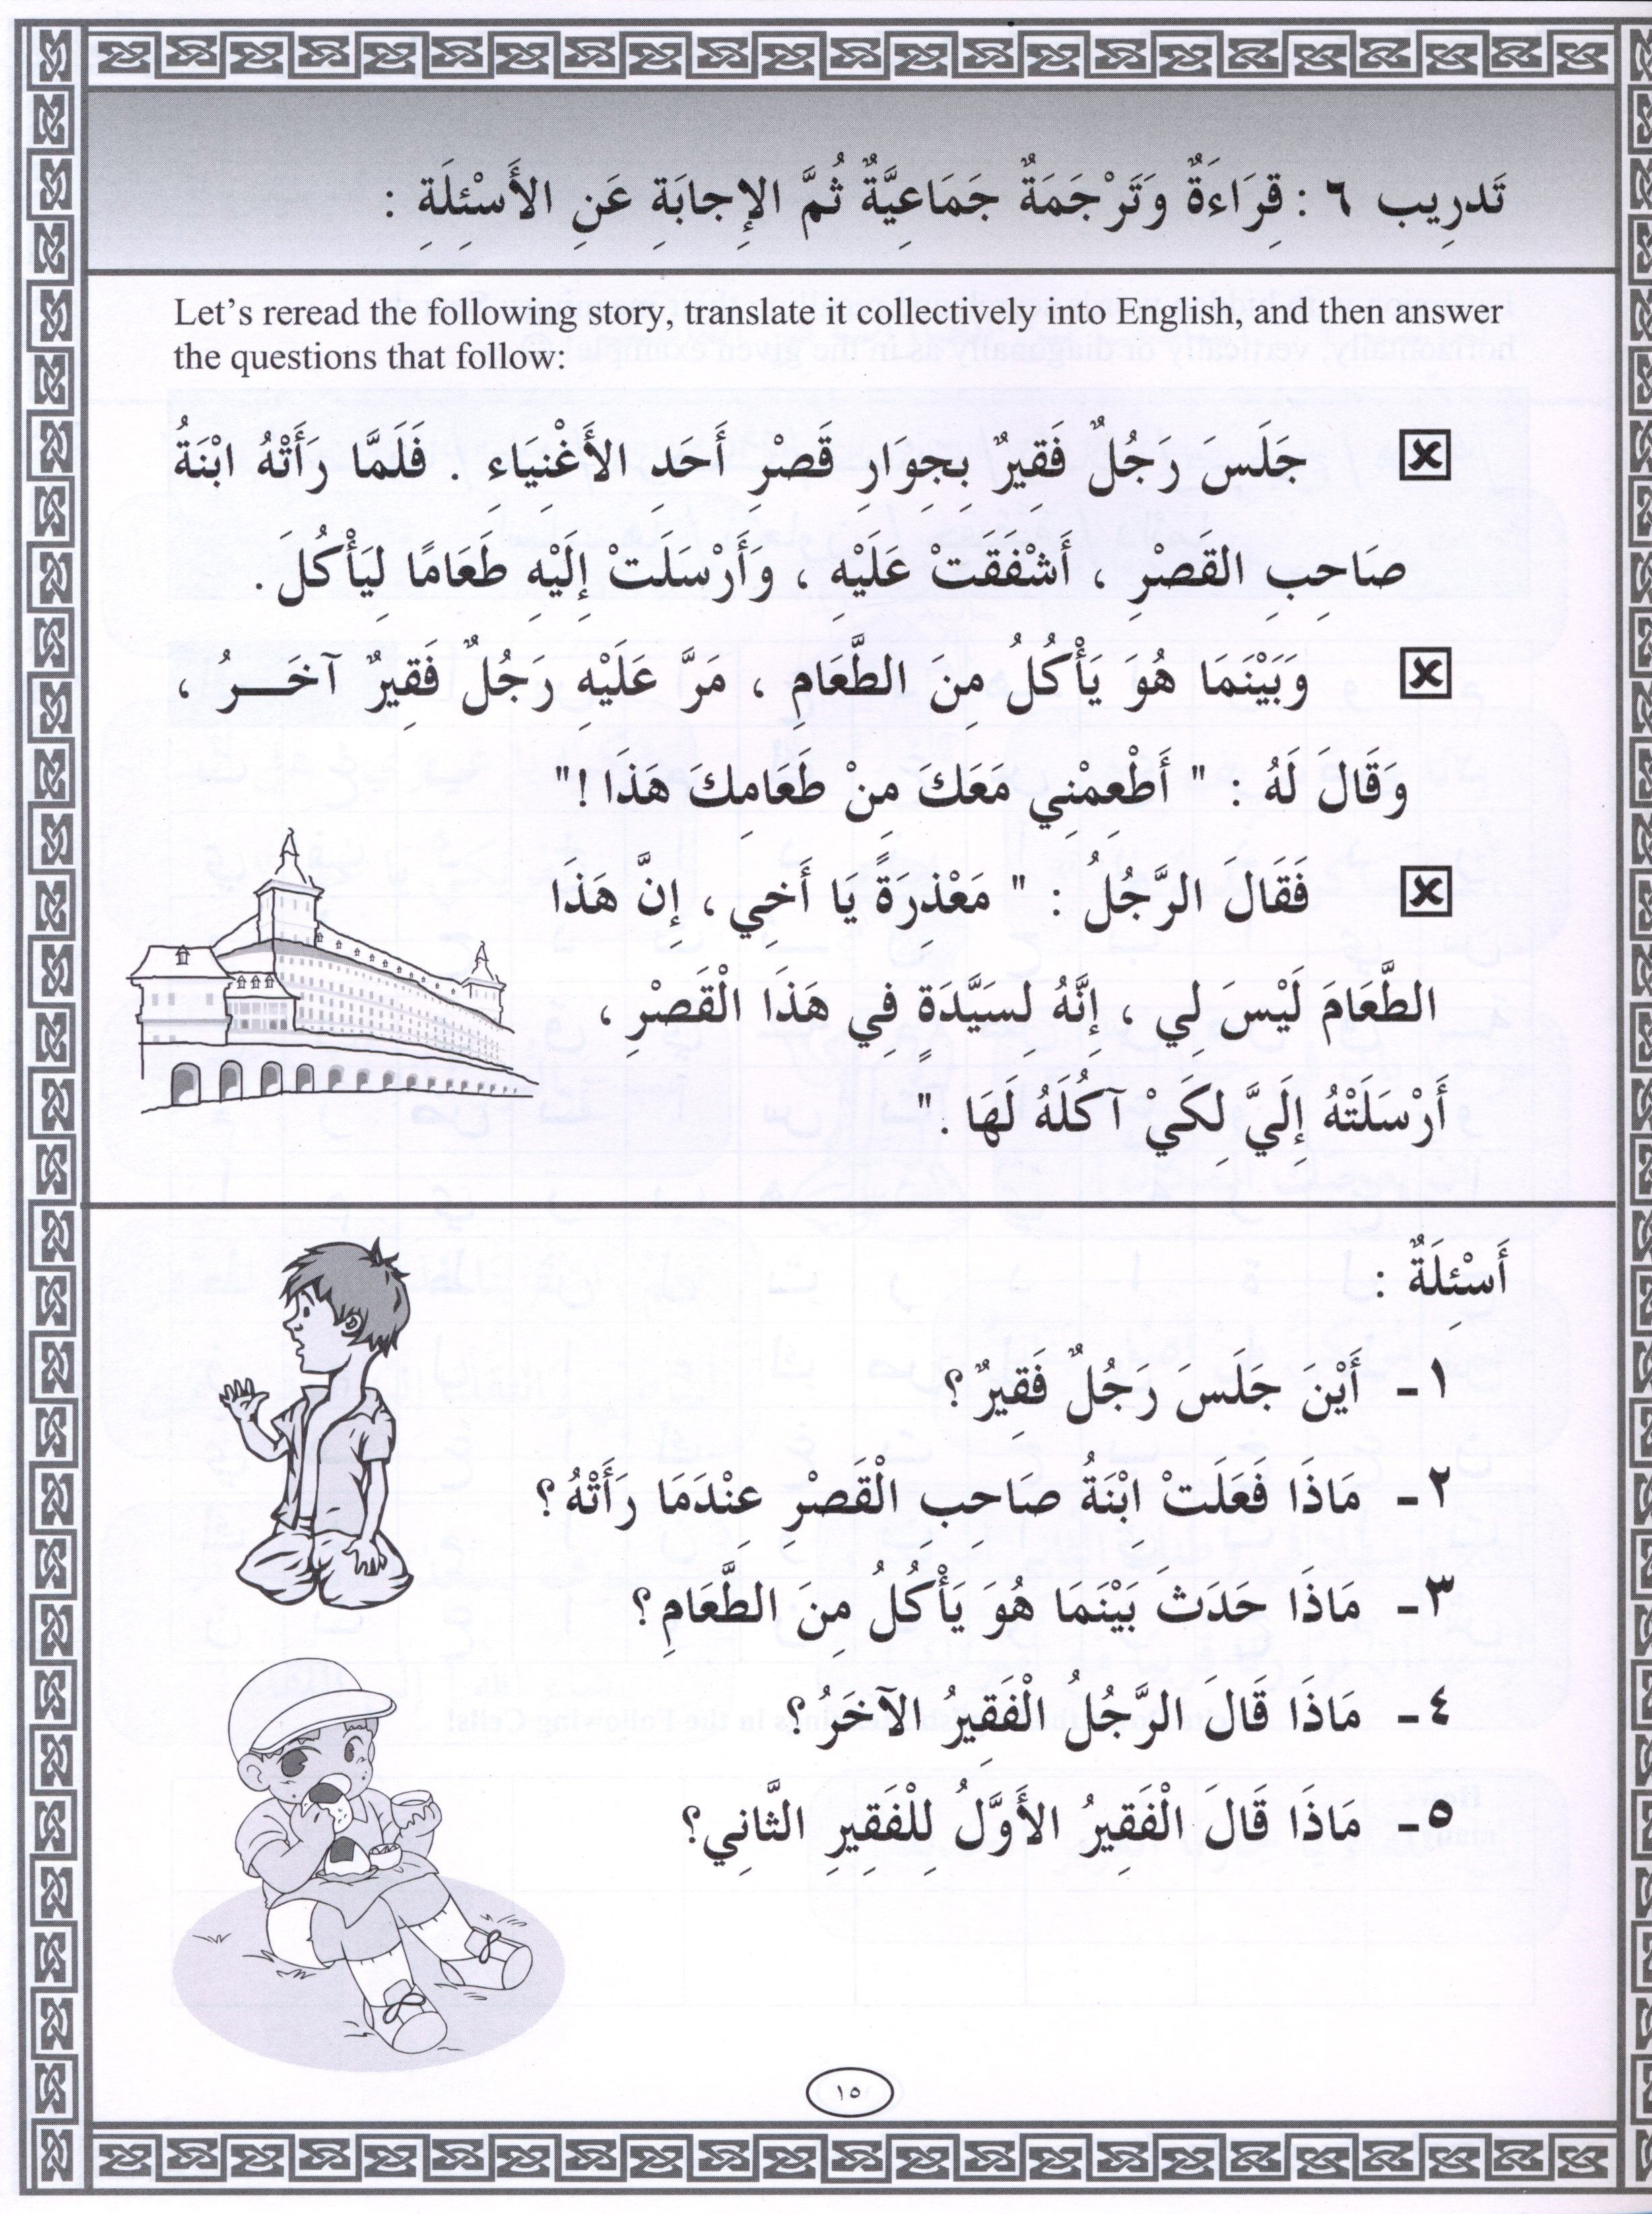 تَدرِيب ٦ : قِرَاءَةٌ وَتَرْجَمَةٌ جَمَاعِيَّةٌ ثُمَّ الإِجابَةِ عَنِ الأَسْئِلَةِ :
Let's reread the following story, translate it collectively into English, and then answer
the questions that follow:
جَلَسَ رَجُلٌ فَقِيرٌ بِجِوَارِ قَصْرِ أَحَدِ الأَغْنِيَاءِ . فَلَمَّا رَأَتْهُ ابْنَةُ
صَاحِبِ القَصْرِ ، أَشْفَقَتْ عَلَيْهِ ، وَأَرْسَلَتْ إِلَيْهِ طَعَامًا لِيَأْكُلَ .
وَبَيْنَمَا هُوَ يَأْكُلُ مِنَ الطَّعَامِ ، مَرَّ عَلَيْهِ رَجُلٌ فَقِيرٌ آخَـــرُ ،
وَقَالَ لَهُ : " أَطْعِمْنِي مَعَكَ مِنْ طَعَامِكَ هَذَا !"
فَقَالَ الرَّجُلُ : " مَعْذِرَةً يَا أَخِي ، إِنَّ هَذَا
الطَّعَامَ لَيْسَ لِي ، إِنَّهُ لِسَيَّدَةٍ فِي هَذَا الْقَصْرِ ،
أَرْسَلَتْهُ إِلَيَّ لِكَيْ آكُلَهُ لَهَا ."
أَسْئِلَةٌ :
١- أَيْنَ جَلَسَ رَجُلٌ فَقِيرٌ ؟
٢- مَاذَا فَعَلَتْ اِبْنَةُ صَاحِبِ الْقَصْرِ عِنْدَمَا رَأَتْهُ ؟
٣- مَاذَا حَدَثَ بَيْنَمَا هُوَ يَأْكُلُ مِنَ الطَّعَامِ ؟
٤- مَاذَا قَالَ الرَّجُلُ الْفَقِيرُ الآخَرُ ؟
٥- مَاذَا قَالَ الْفَقِيرُ الأَوَّلُ لِلْفَقِيرِ الثَّانِي ؟
١٥